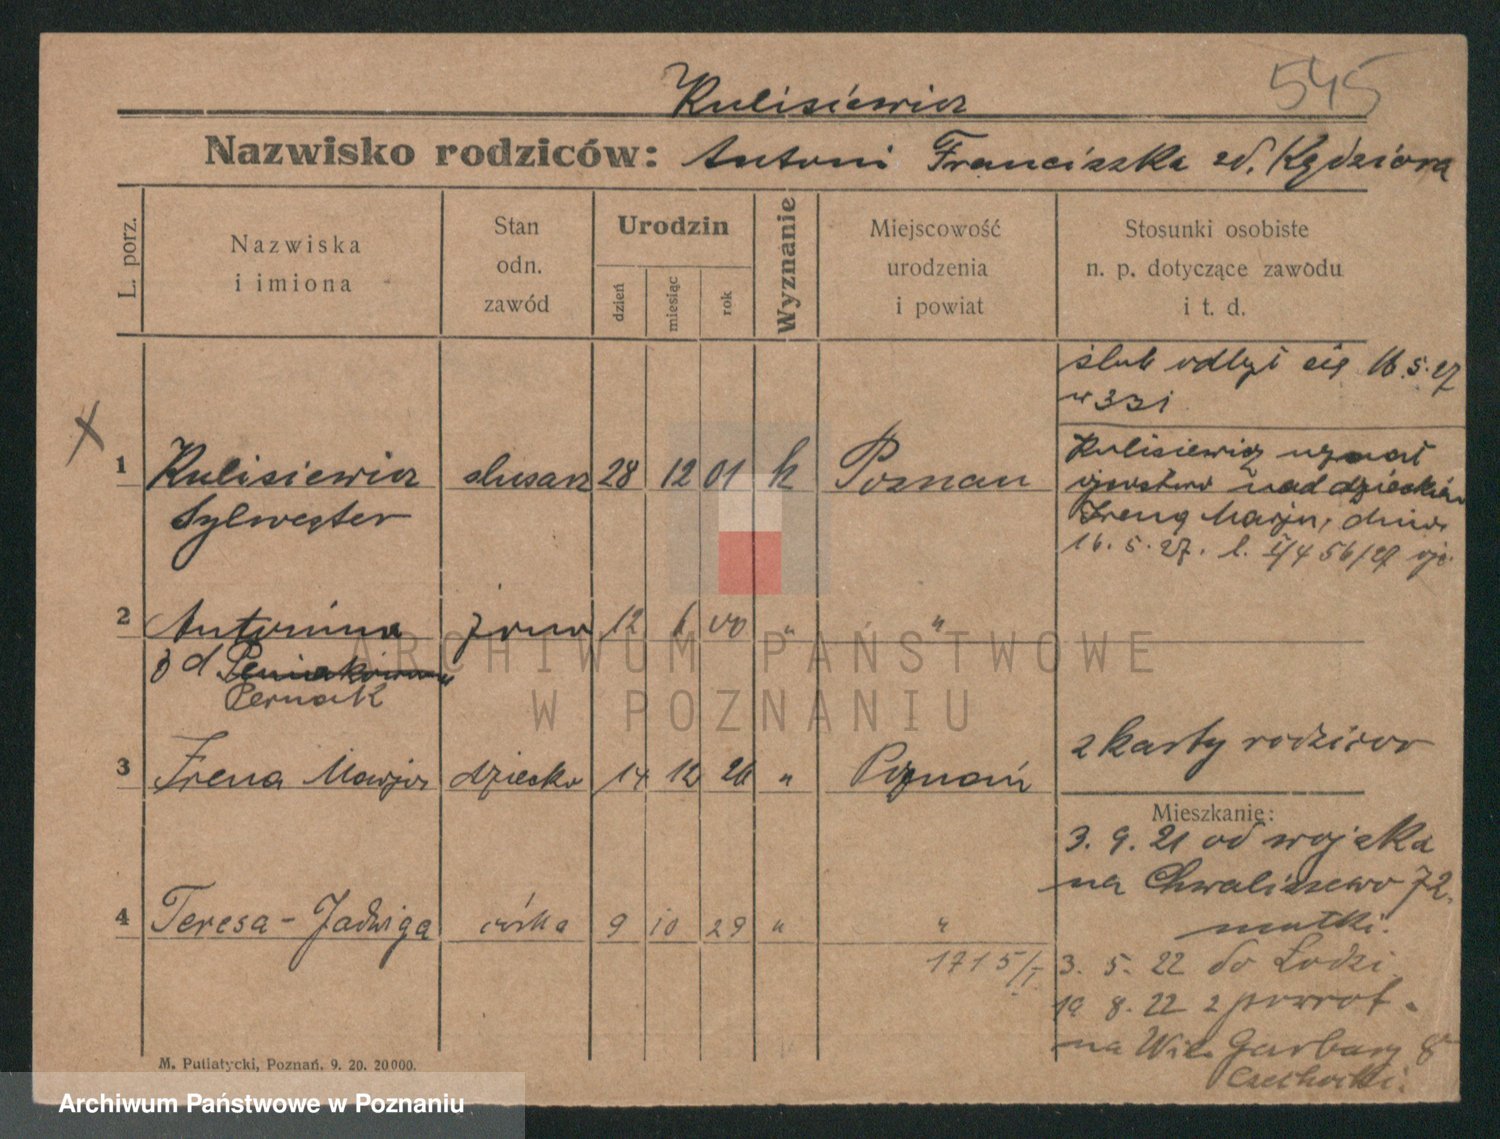 545
Kulisiewicz
Nazwisko rodziców: Antoni Franciszka zd. Kędziora
L. porz.
Nazwiska
i imiona
Stan
odn.
zawód
Urodzin
dzień
miesiąc
rok
Wyznanie
Miejscowość
urodzenia
i powiat
Stosunki osobiste
n. p. dotyczące zawodu
i t. d.
ślub odbył się 16.5.27
Kulisiewicz uznał
ojcostwo nad dzieckiem
Ireną Marją, dnia
16.5.27.
1 Kulisiewicz ślusarz 28 12 01 k Poznań
Sylwester
2 Antonina żona 12 6 00 " "
Pernak
3 Irena Marja dziecko 14 12 26 " Poznań
2 karty rodziców
Mieszkanie:
3. 9. 21 od wojska
na Chwaliszewo 72.
matki.
4 Teresa - Jadwiga córka 9 10 29 " "
1715/I
3. 5. 22 do Łodzi
19 8. 22 z powrot.
na Wlk. Garbary 8
Czechocki.
M. Putiatycki, Poznań. 9. 20. 20000.
ARCHIWUM PAŃSTWOWE
W POZNANIU
Archiwum Państwowe w Poznaniu